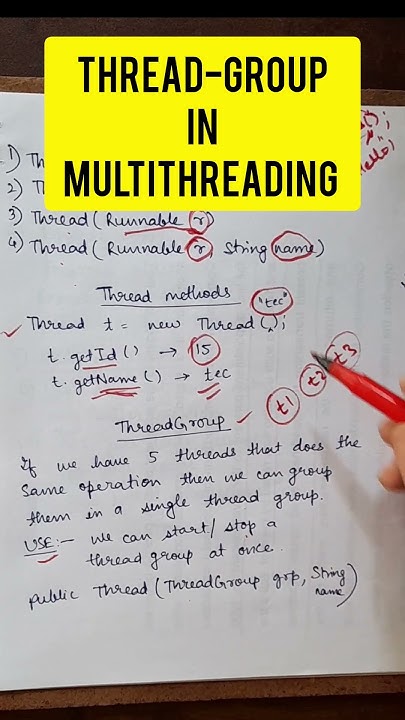 THREAD-GROUP
IN
MULTITHREADING
1) Th
2) Th
3) Thread (Runnable r)
4) Thread (Runnable r, String name)
Thread methods
"tec"
Thread t = new Thread( );
t.getId() → 15
t.getName() → tec
t1 t2 t3
ThreadGroup
If we have 5 threads that does the
same operation then we can group
them in a single thread group.
USE:- we can start/stop a
thread group at once.
public Thread (ThreadGroup grp, String name)